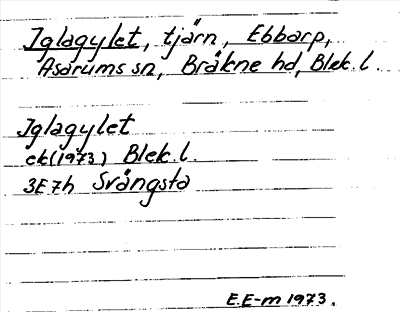 Iglagylet, tjärn, Ebbarp,
Asarums sn, Bräkne hd, Blek. l.
Iglagylet
ek (1973) Blek. l.
3E7h Svängsta
E.E-m 1973.